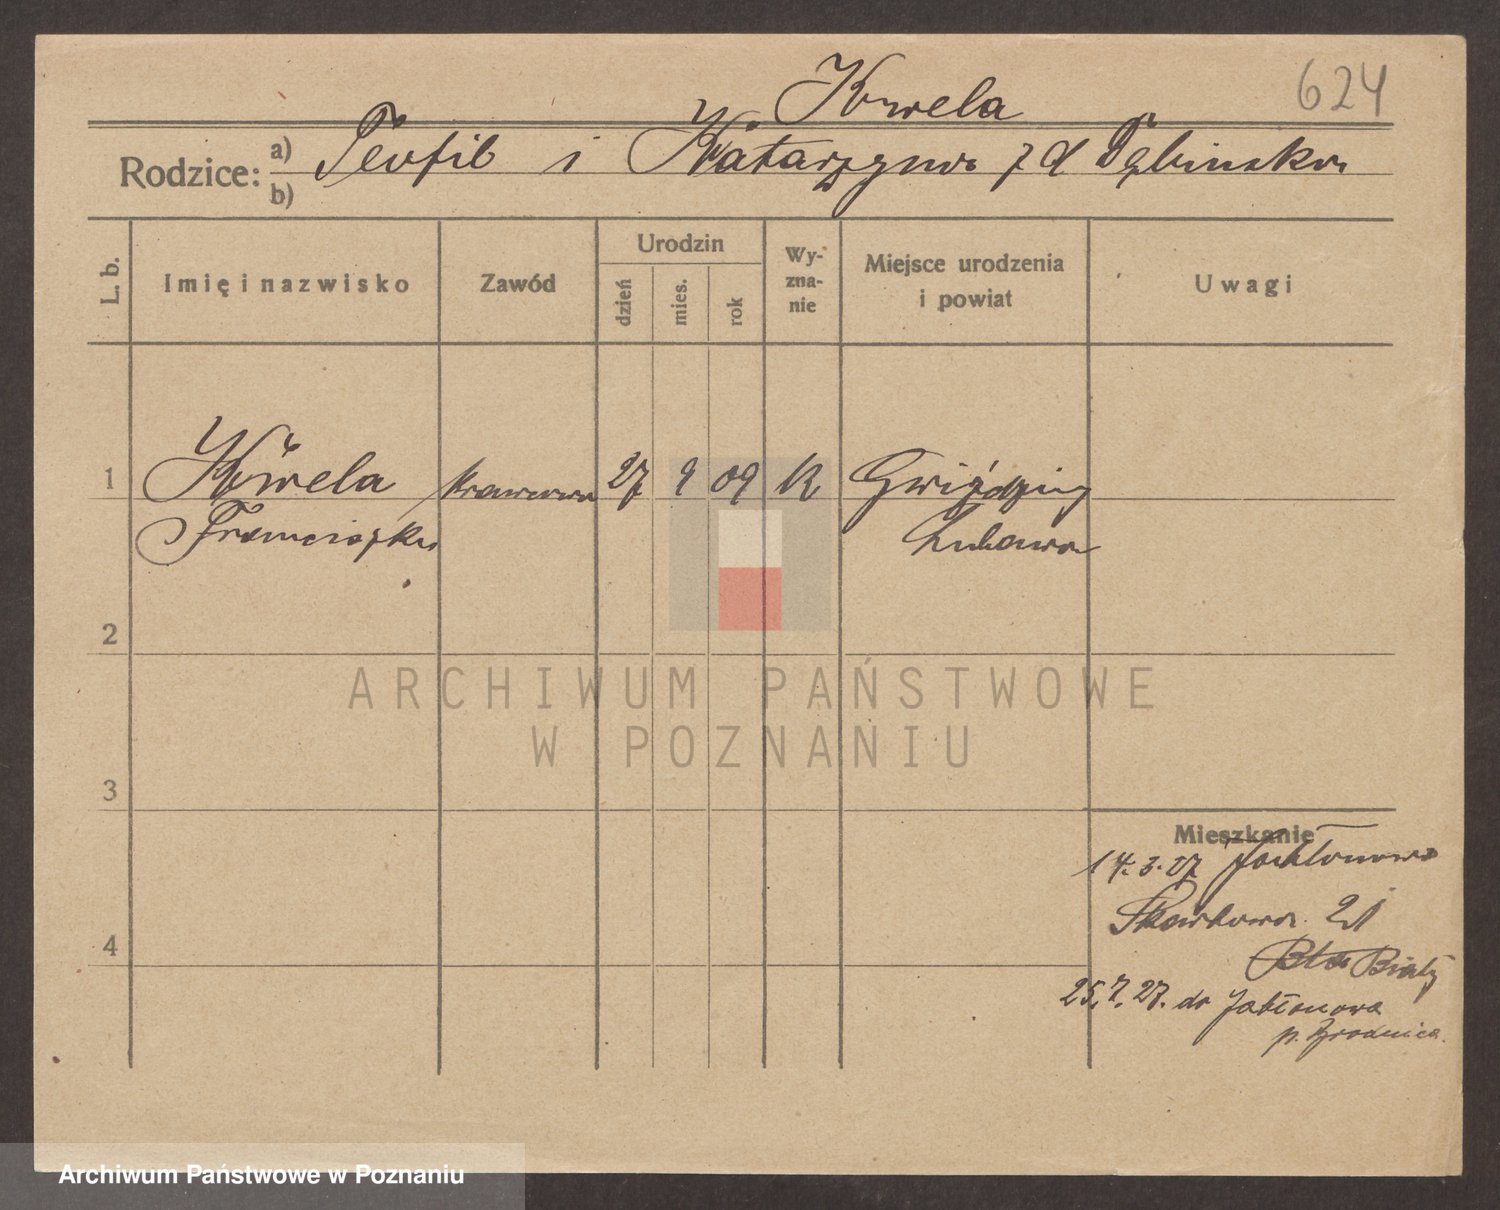 Kwela
624
Rodzice: a) Teofil i Katarzyna z d Dębińska
b)
L. b. Imię i nazwisko Zawód Urodzin dzień mies. rok Wy-zna-nie Miejsce urodzenia i powiat Uwagi
1 Kwela krawcowa 27 9 09 K Gwiździny
Franciszka Lubawa
2
ARCHIWUM PAŃSTWOWE
W POZNANIU
3
Mieszkanie
14.3.27 Jabłonowo
Skarbowa 21
Biały
4
25.7.27. do Jabłonowa
p. Brodnica.
Archiwum Państwowe w Poznaniu